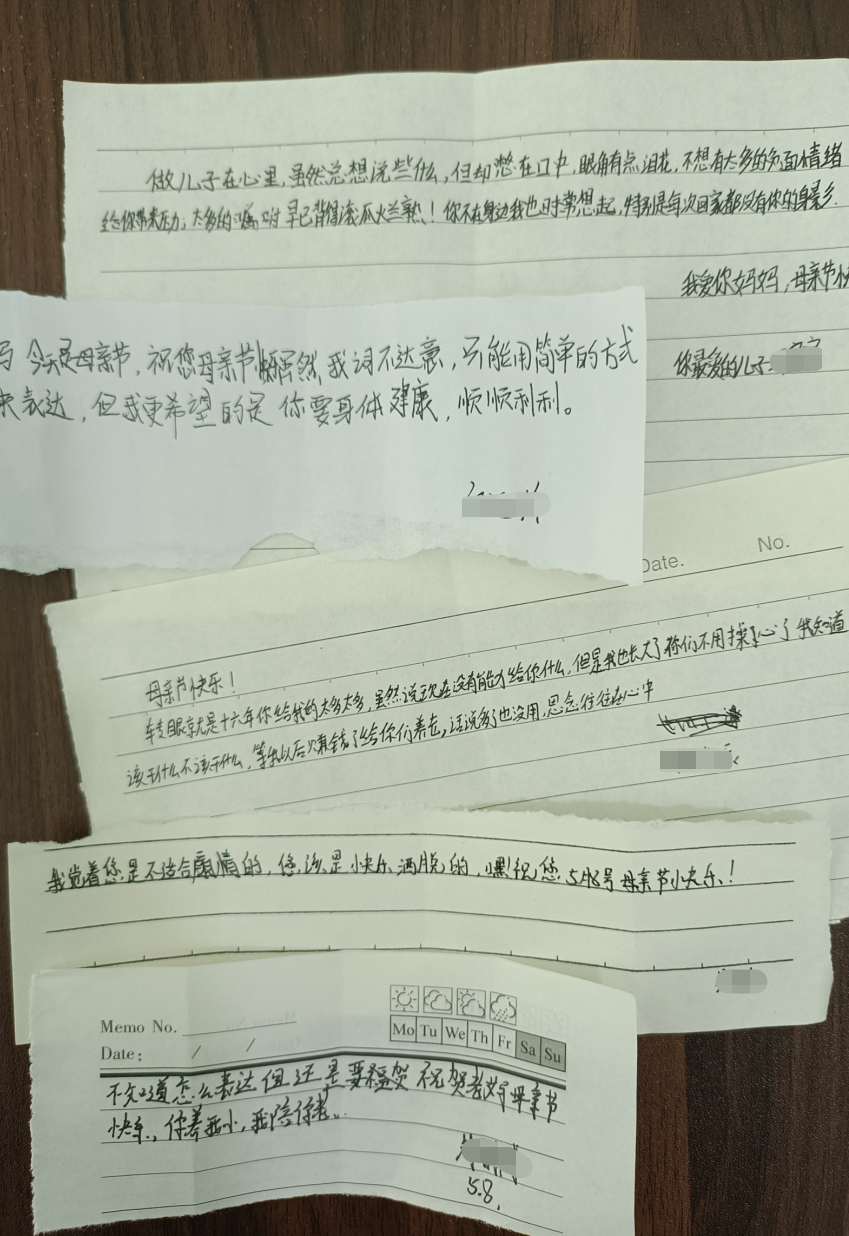 做儿子在心里,虽然总想说些什么,但却憋在口中,眼角有点泪花,不想有太多的负面情绪
给你带来压力;太多的嘱咐早已背得滚瓜火兰熟!你不在身边我也时常想起,特别是每次回家都没有你的身影.
我爱你妈妈,母亲节快
你最爱的儿子
今天是母亲节,祝您母亲节 虽然我词不达意,只能用简单的方式
来表达,但我更希望的是你要身体建康,顺顺利利。
Date. No.
母亲节快乐!
转眼就是十六年你给我的太多太多,虽然说现在没有能力给你什么,但是我也长大了你们不用操心了我知道
该干什么不该干什么,等我以后赚钱了给你们养老,话说多了也没用,思念往往在心中
我觉着您是不适合煽情的,您该是快乐洒脱的,嘿祝您5月8号母亲节快乐!
Memo No.
Date: / /
Mo Tu We Th Fr Sa Su
不知道怎么表达但还是要祝贺 母亲节
快乐,你养我小,我陪你老..
5.8.